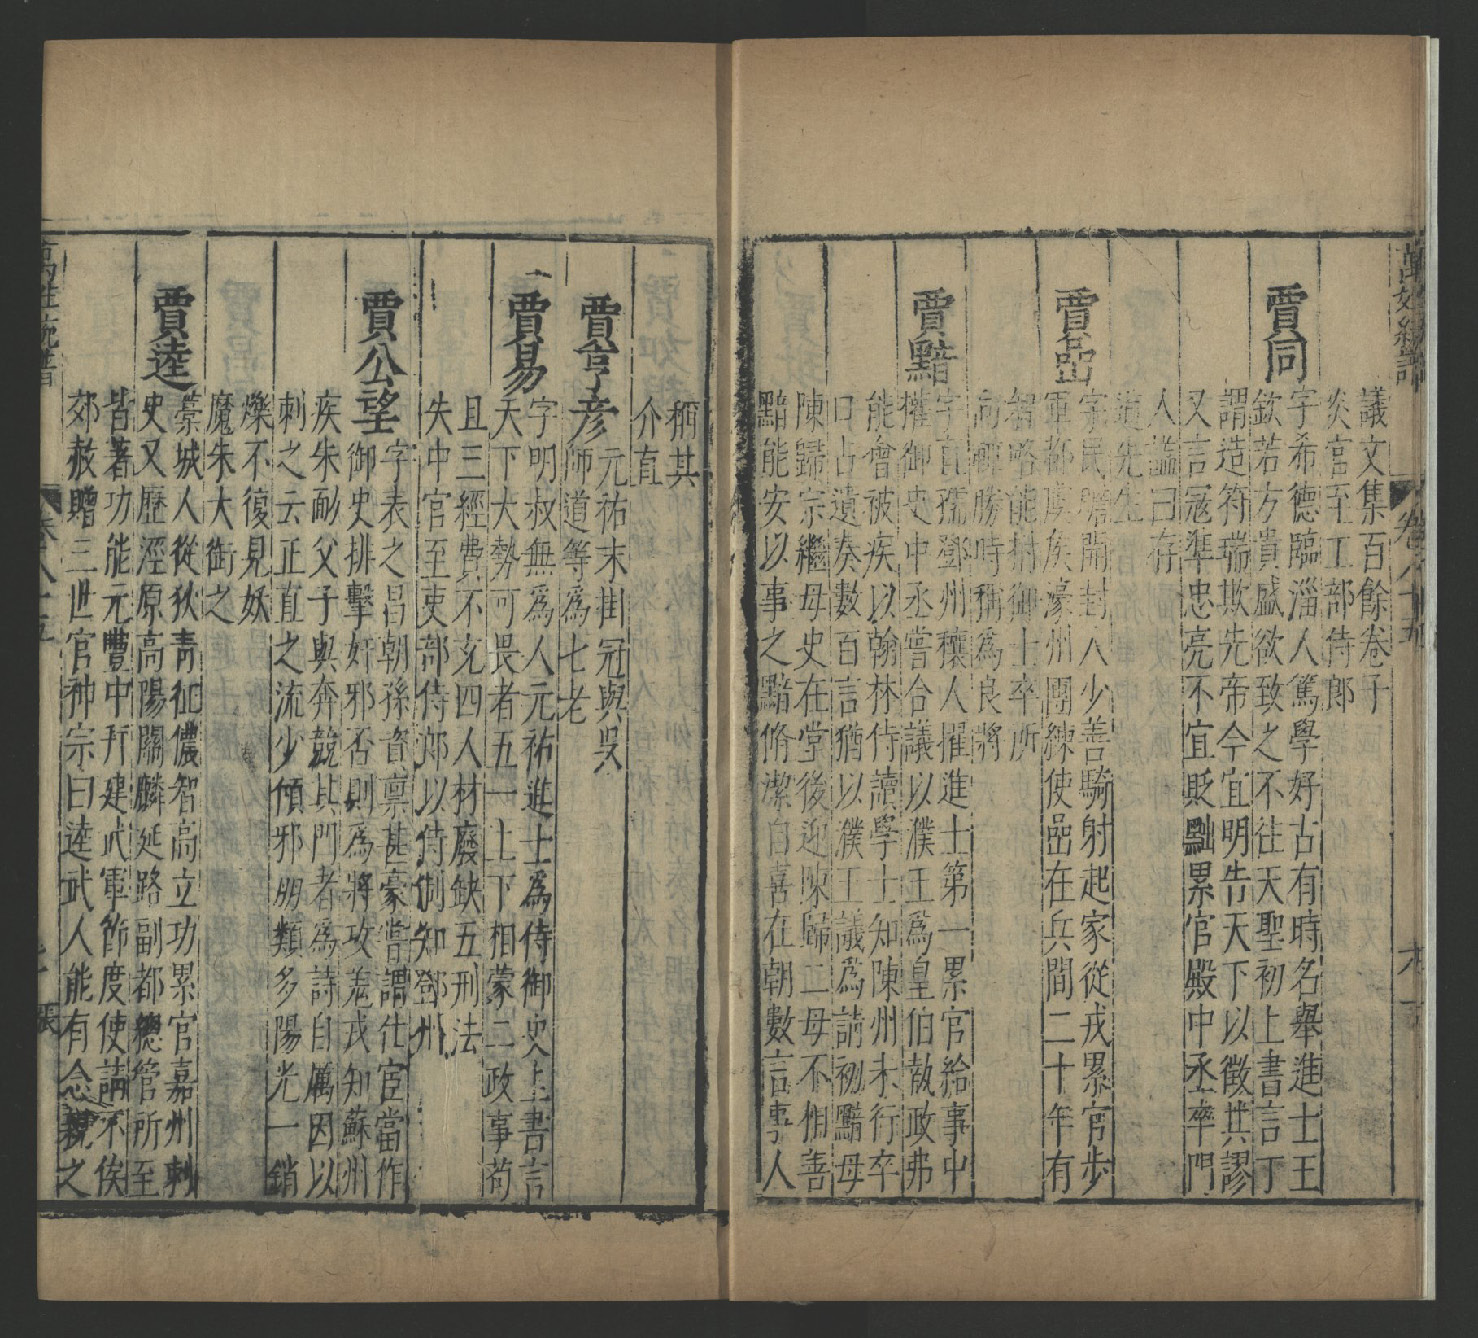 議文集百餘卷子
炎官至工部侍郎
賈同
字希德臨淄人篤學好古有時名舉進士王
欽若方貴盛欲致之不往天聖初上書言丁
謂造符瑞欺先帝今宜明告天下以徵其謬
又言寇準忠亮不宜貶黜累官殿中丞卒門
人謚曰存
道先生
賈嵒
字民瞻開封人少善騎射起家從戎累官步
軍都虞候濠州團練使嵒在兵間二十年有
智略能拊御士卒所
向輒勝時稱為良將
賈黯
字直孺鄧州穰人擢進士第一累官給事中
權御史中丞嘗合議以濮王為皇伯執政弗
能會被疾以翰林侍讀學士知陳州未行卒
口占遺奏數百言猶以濮王議為請初黯母
陳歸宗繼母史在堂後迎陳歸二母不相善
黯能安以事之黯脩潔自喜在朝數言事人
稱其
介直
賈亨彥
元祐末掛冠與吳
師道等為七老
賈易
字明叔無為人元祐進士為侍御史上書言
天下大勢可畏者五一上下相蒙二政事苟
且三經費不充四人材廢缺五刑法
失中官至吏部侍郎以待制知鄧州
賈公望
字表之昌朝孫資禀甚豪嘗謂仕宦當作
御史排擊奸邪否則為將攻羗戎知蘇州
疾朱勔父子與奔競其門者為詩自厲因以
刺之云正直之流少傾邪朋類多陽光一銷
爍不復見妖
魔朱大銜之
賈逵
藁城人從狄青征儂智高立功累官嘉州刺
史又歷涇原高陽關麟延路副都緫管所至
皆著功能元豐中拜建武軍節度使請不俟
郊赦贈三世官神宗曰逵武人能有念親之